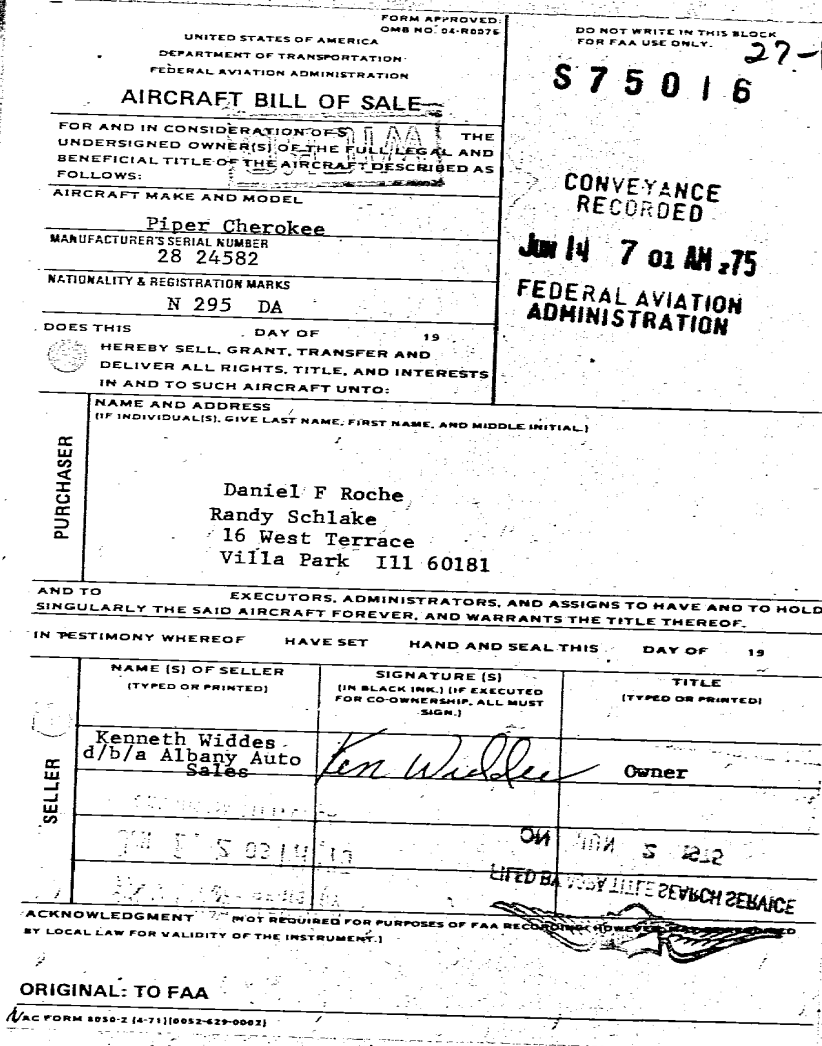 FORM APPROVED:
OMB NO. 04-R0076
UNITED STATES OF AMERICA
DEPARTMENT OF TRANSPORTATION
FEDERAL AVIATION ADMINISTRATION
AIRCRAFT BILL OF SALE
FOR AND IN CONSIDERATION OF $ THE
UNDERSIGNED OWNER(S) OF THE FULL LEGAL AND
BENEFICIAL TITLE OF THE AIRCRAFT DESCRIBED AS
FOLLOWS:
AIRCRAFT MAKE AND MODEL
Piper Cherokee
MANUFACTURER'S SERIAL NUMBER
28 24582
NATIONALITY & REGISTRATION MARKS
N 295 DA
DOES THIS DAY OF 19
HEREBY SELL, GRANT, TRANSFER AND
DELIVER ALL RIGHTS, TITLE, AND INTERESTS
IN AND TO SUCH AIRCRAFT UNTO:
DO NOT WRITE IN THIS BLOCK
FOR FAA USE ONLY.
27-
S 7 5 0 1 6
CONVEYANCE
RECORDED
JUN 14 7 01 AM '75
FEDERAL AVIATION
ADMINISTRATION
PURCHASER
NAME AND ADDRESS
(IF INDIVIDUAL(S), GIVE LAST NAME, FIRST NAME, AND MIDDLE INITIAL.)
Daniel F Roche
Randy Schlake
16 West Terrace
Villa Park Ill 60181
AND TO EXECUTORS, ADMINISTRATORS, AND ASSIGNS TO HAVE AND TO HOLD
SINGULARLY THE SAID AIRCRAFT FOREVER, AND WARRANTS THE TITLE THEREOF.
IN TESTIMONY WHEREOF HAVE SET HAND AND SEAL THIS DAY OF 19
SELLER
NAME (S) OF SELLER
(TYPED OR PRINTED)
SIGNATURE (S)
(IN BLACK INK.) (IF EXECUTED
FOR CO-OWNERSHIP, ALL MUST
SIGN.)
TITLE
(TYPED OR PRINTED)
Kenneth Widdes
d/b/a Albany Auto
Sales
Ken Widdes
Owner
FILED BY TITLE SEARCH SERVICE
ON JUN 2 1975
ACKNOWLEDGMENT (NOT REQUIRED FOR PURPOSES OF FAA RECORDING: HOWEVER,
BY LOCAL LAW FOR VALIDITY OF THE INSTRUMENT.)
ORIGINAL: TO FAA
AC FORM 8050-2 (4-71)(0052-629-0002)